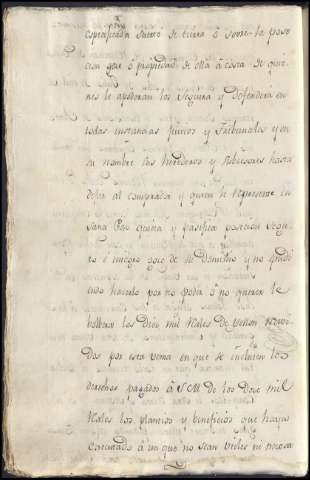 especificada suerte de tierra ó sovre la pose
cion goze ó propiedad de ella á costa de quie
nes le apoderan los seguira y Defendera en
todas instancias Juicios y Tribunales y en
su nombre sus herederos y subcesores hasta
dejar al comprador y quien le represente en
sana Paz quieta y pasifica posecion segu
ro é integro goze de su Dominio y no pudi
endo hacerlo por no poder ó no querer le
bolbera los Diez mil Reales de vellon recivi
dos por esta venta en que se incluien los
derechos pagados á S.M. de los Doce mil
Reales los plantios y beneficios que haya
executado á un que no sean utiles ni necesa